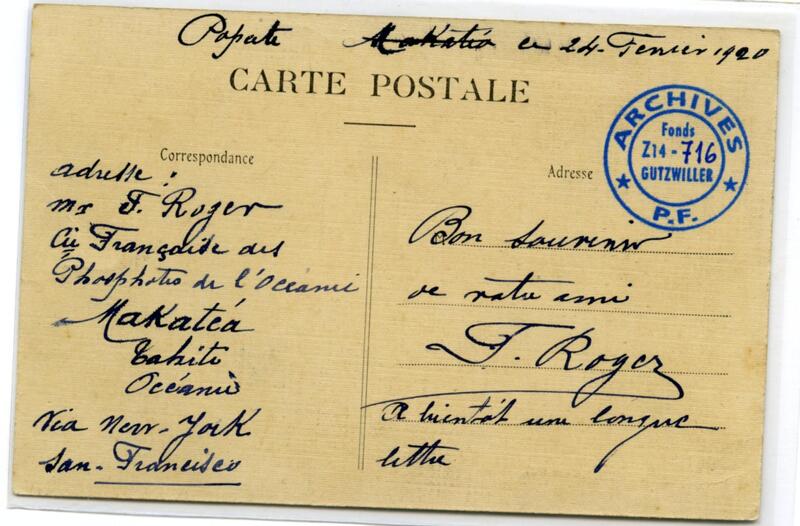 Papeete Makatéa ce 24 - Février 1920
CARTE POSTALE
ARCHIVES
Fonds
Z14-716
GUTZWILLER
P.F.
Correspondance
adresse :
Mr F. Roger
Cie Française des
Phosphates de l'Océanie
Makatéa
Tahiti
Océanie
Via New-York
San-Francisco
Adresse
Bon souvenir
de votre ami
F. Roger
A bientôt une longue
lettre